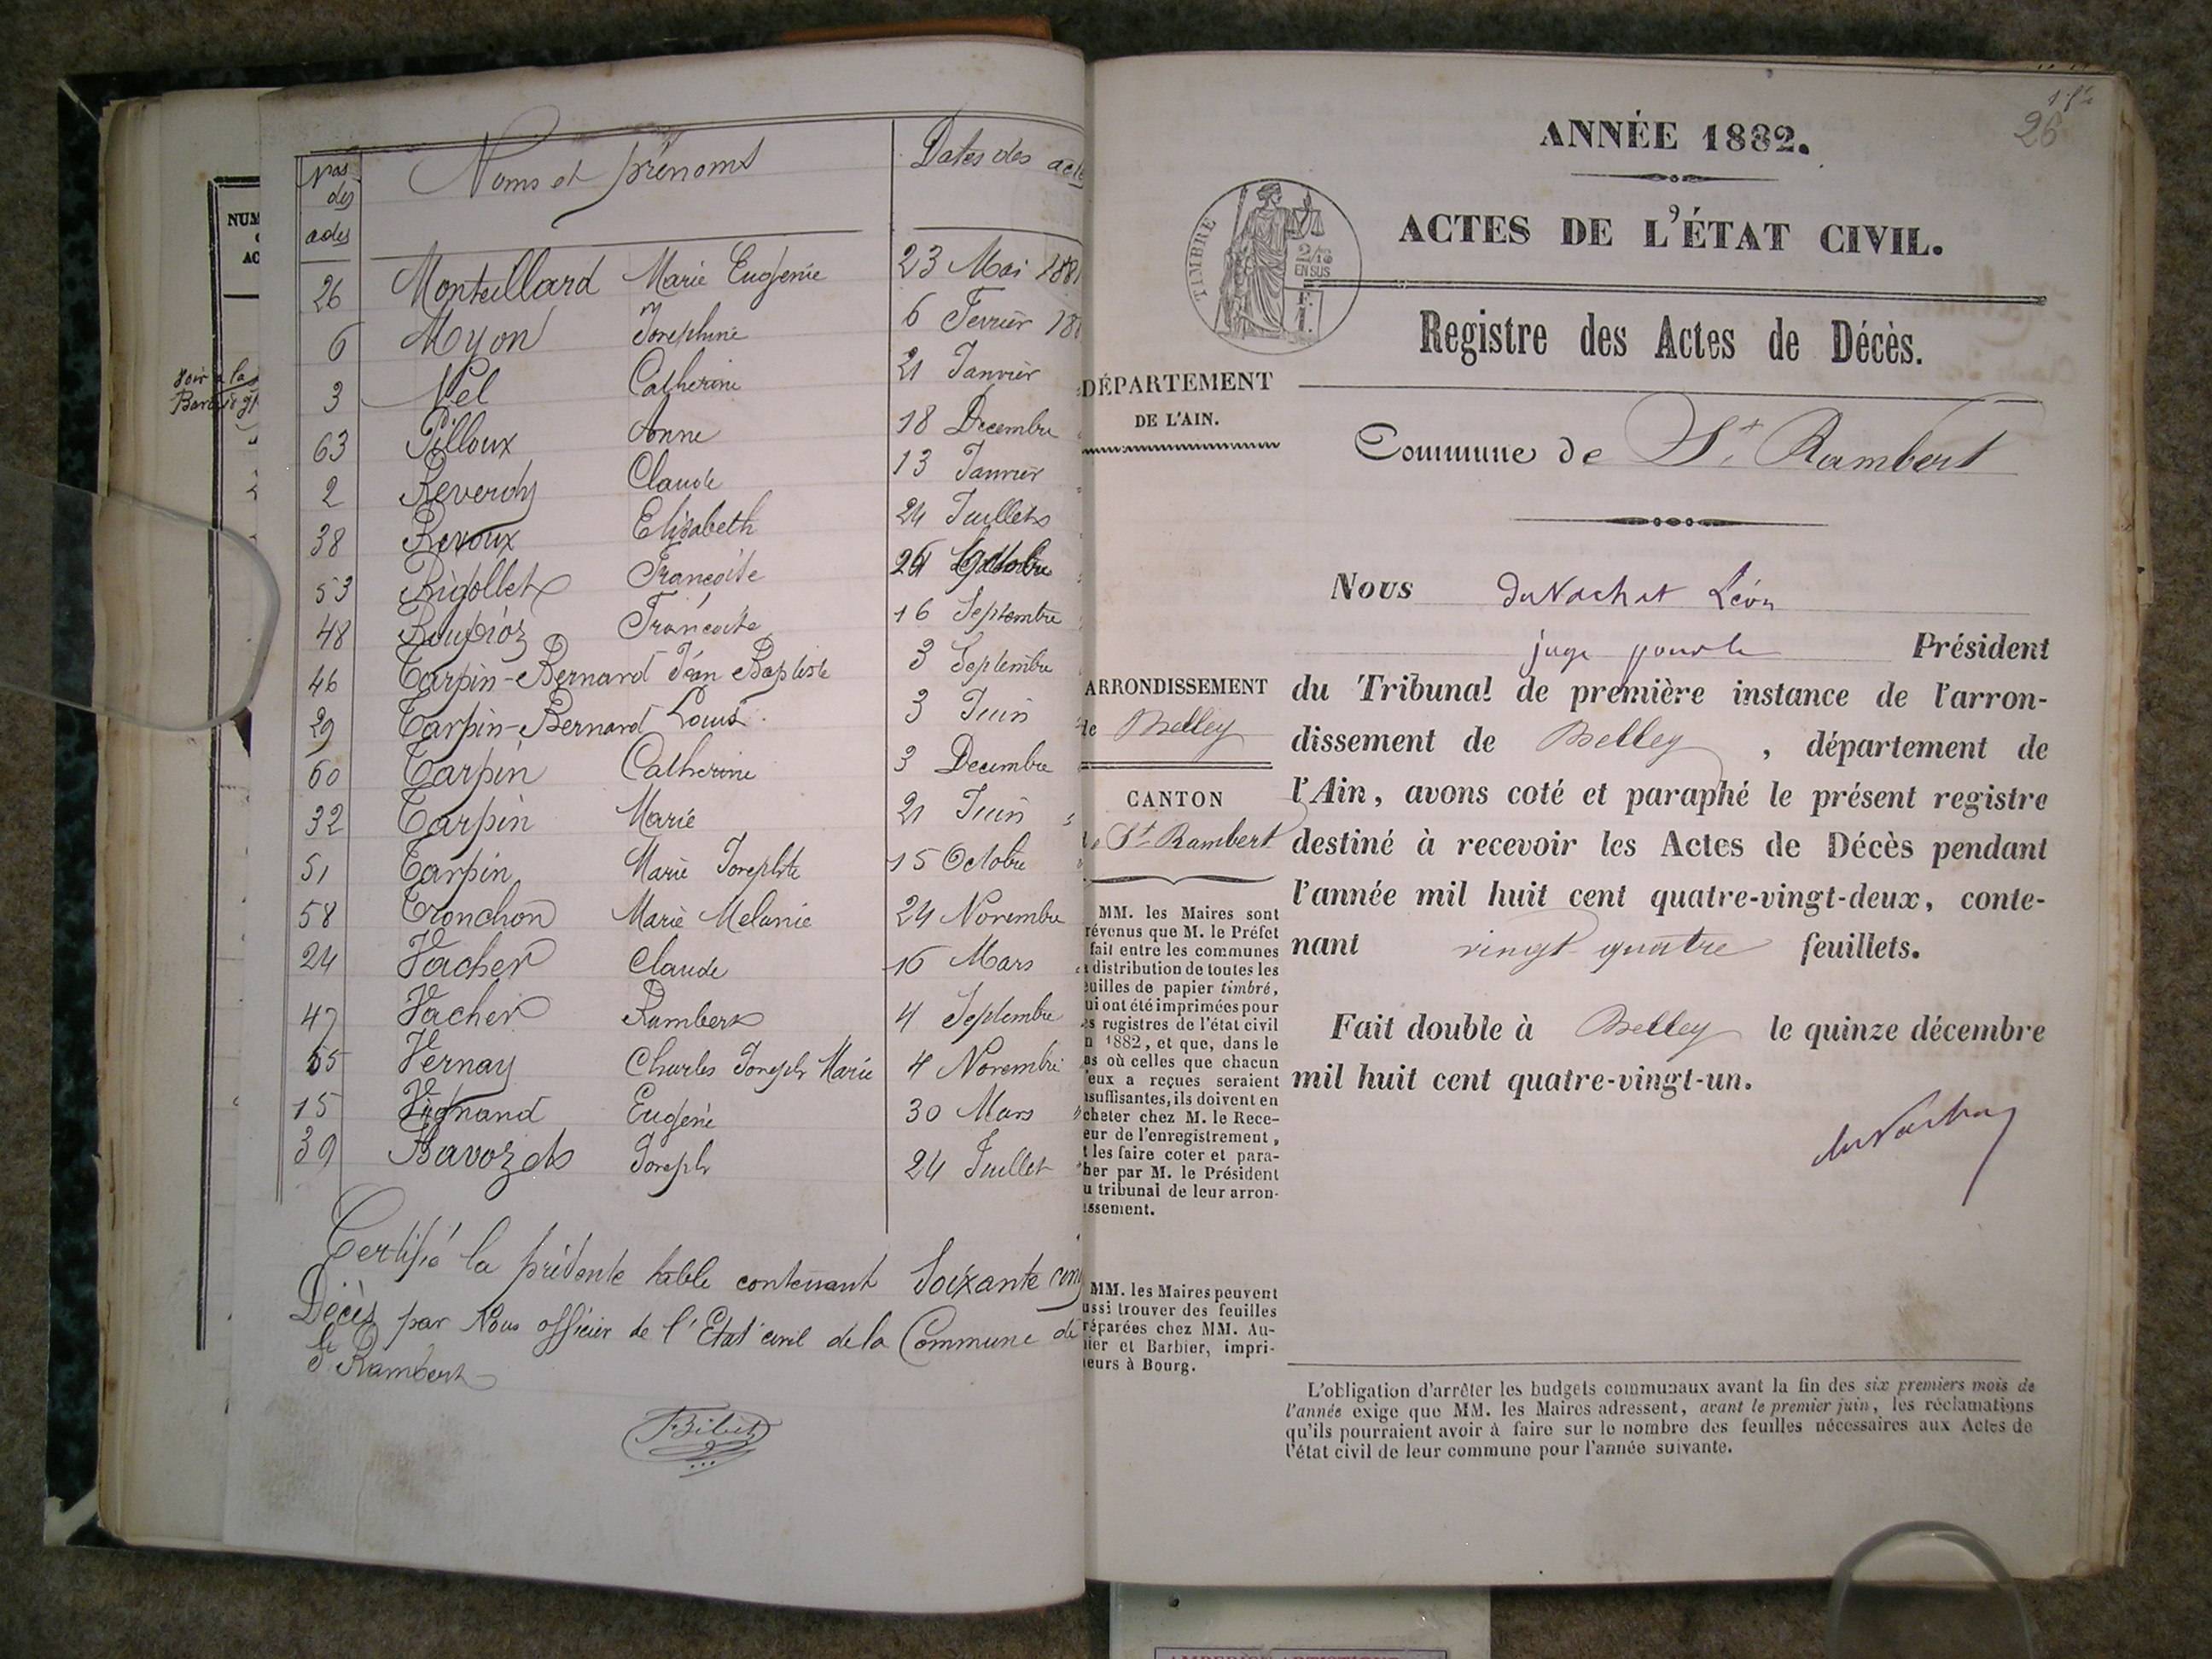 Nos des actes
Noms et prénoms
Dates des actes
26 Monteillard Marie Eugenie 23 Mai 1881
6 Myon Josephine 6 Fevrier 18
3 Nel Catherine 21 Janvier
63 Pilloux Anne 18 Decembre
2 Reverdy Claude 13 Janvier
38 Revoux Elisabeth 24 Juillet
53 Rigollet Francoise 26
48 Francoise 16 Septembre
46 Tarpin-Bernard Jean Baptiste 3 Septembre
29 Tarpin-Bernard Louis 3 Juin
60 Tarpin Catherine 3 Decembre
32 Tarpin Marie 21 Juin
51 Tarpin Marie Josephte 15 Octobre
58 Tronchon Marie Melanie 24 Novembre
24 Vacher Claude 16 Mars
47 Vacher Rambert 4 Septembre
55 Vernay Charles Joseph Marie 4 Novembre
15 Vignand Eugène 30 Mars
39 Bavozet Joseph 24 Juillet
Certifié la présente table contenant Soixante cinq
Décès par Nous officier de l'Etat civil de la Commune de
St Rambert
Bibet
NUM
AC
Voir à la
26
ANNÉE 1882.
ACTES DE L'ÉTAT CIVIL.
TIMBRE
2/10
EN SUS
Registre des Actes de Décès.
DÉPARTEMENT
DE L'AIN.
Commune de St Rambert
Nous du Vachat Léon
juge pour le Président
ARRONDISSEMENT
de Belley
CANTON
de St Rambert
du Tribunal de première instance de l'arron-
dissement de Belley, département de
l'Ain, avons coté et paraphé le présent registre
destiné à recevoir les Actes de Décès pendant
l'année mil huit cent quatre-vingt-deux, conte-
nant vingt-quatre feuillets.
Fait double à Belley le quinze décembre
mil huit cent quatre-vingt-un.
du Vachat
MM. les Maires sont
révenus que M. le Préfet
fait entre les communes
a distribution de toutes les
euilles de papier timbré,
ui ont été imprimées pour
es registres de l'état civil
n 1882, et que, dans le
as où celles que chacun
'eux a reçues seraient
nsuffisantes, ils doivent en
cheter chez M. le Rece-
eur de l'enregistrement,
t les faire coter et para-
her par M. le Président
u tribunal de leur arron-
issement.
MM. les Maires peuvent
ussi trouver des feuilles
réparées chez MM. Au-
nier et Barbier, impri-
eurs à Bourg.
L'obligation d'arrêter les budgets communaux avant la fin des six premiers mois de
l'année exige que MM. les Maires adressent, avant le premier juin, les réclamations
qu'ils pourraient avoir à faire sur le nombre des feuilles nécessaires aux Actes de
l'état civil de leur commune pour l'année suivante.